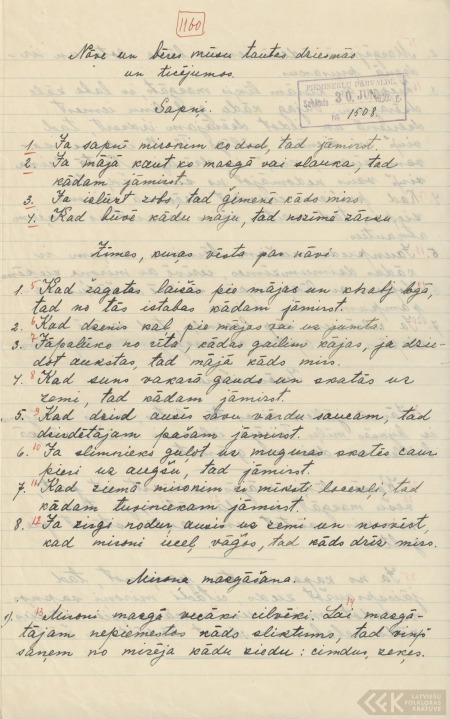 1160
Nāve un bēres mūsu tautas dziesmās
un ticējumos.
PIEMINEKĻU PĀRVALDE
30. JUN.
№ 1508.
Sapņi.
1. Ja sapnī mironim ko dod, tad jāmirst.
2. Ja mājā kaut ko mazgā vai slauka, tad
kādam jāmirst.
3. Ja izlūzt zobs, tad ģimenē kāds mirs.
4. Kad būvē kādu māju, tad nozīmē zārku.
Zīmes, kuras vēsta par nāvi.
1. 5 Kad žagatas laižas pie mājas un
tad no tās istabas kādam jāmirst.
2. 6 Kad dzenis kaļ pie mājas vai uz jumta.
3. 7 Jāpalūko no rīta, kādas gailim kājas, ja dzie-
dot aukstas, tad mājā kāds mirs.
4. 8 Kad suns vakarā gaudo un skatās uz
zemi, tad kādam jāmirst.
5. 9 Kad dzird ausīs savu vārdu saucam, tad
dzirdētājam pašam jāmirst.
6. 10 Ja slimnieks guļot uz muguras skatās caur
pieri uz augšu, tad jāmirst.
7. 11 Kad ziemā mironim ir mīksti locekļi, tad
kādam tuviniekam jāmirst.
8. 12 Ja zirgi nodur ausis uz zemi un nosviest,
kad mironi ieceļ vāģos, tad kāds drīz mirs.
Miroņa mazgāšana.
13 Mironi mazgā vecāki cilvēki. 14 Lai mazgā-
tājam nepiemestos kāds sliktums, tad viņš
saņem no mirēja kādu ziedu: cimdus, zeķes.
LATVIEŠU
FOLKLORAS
KRĀTUVE